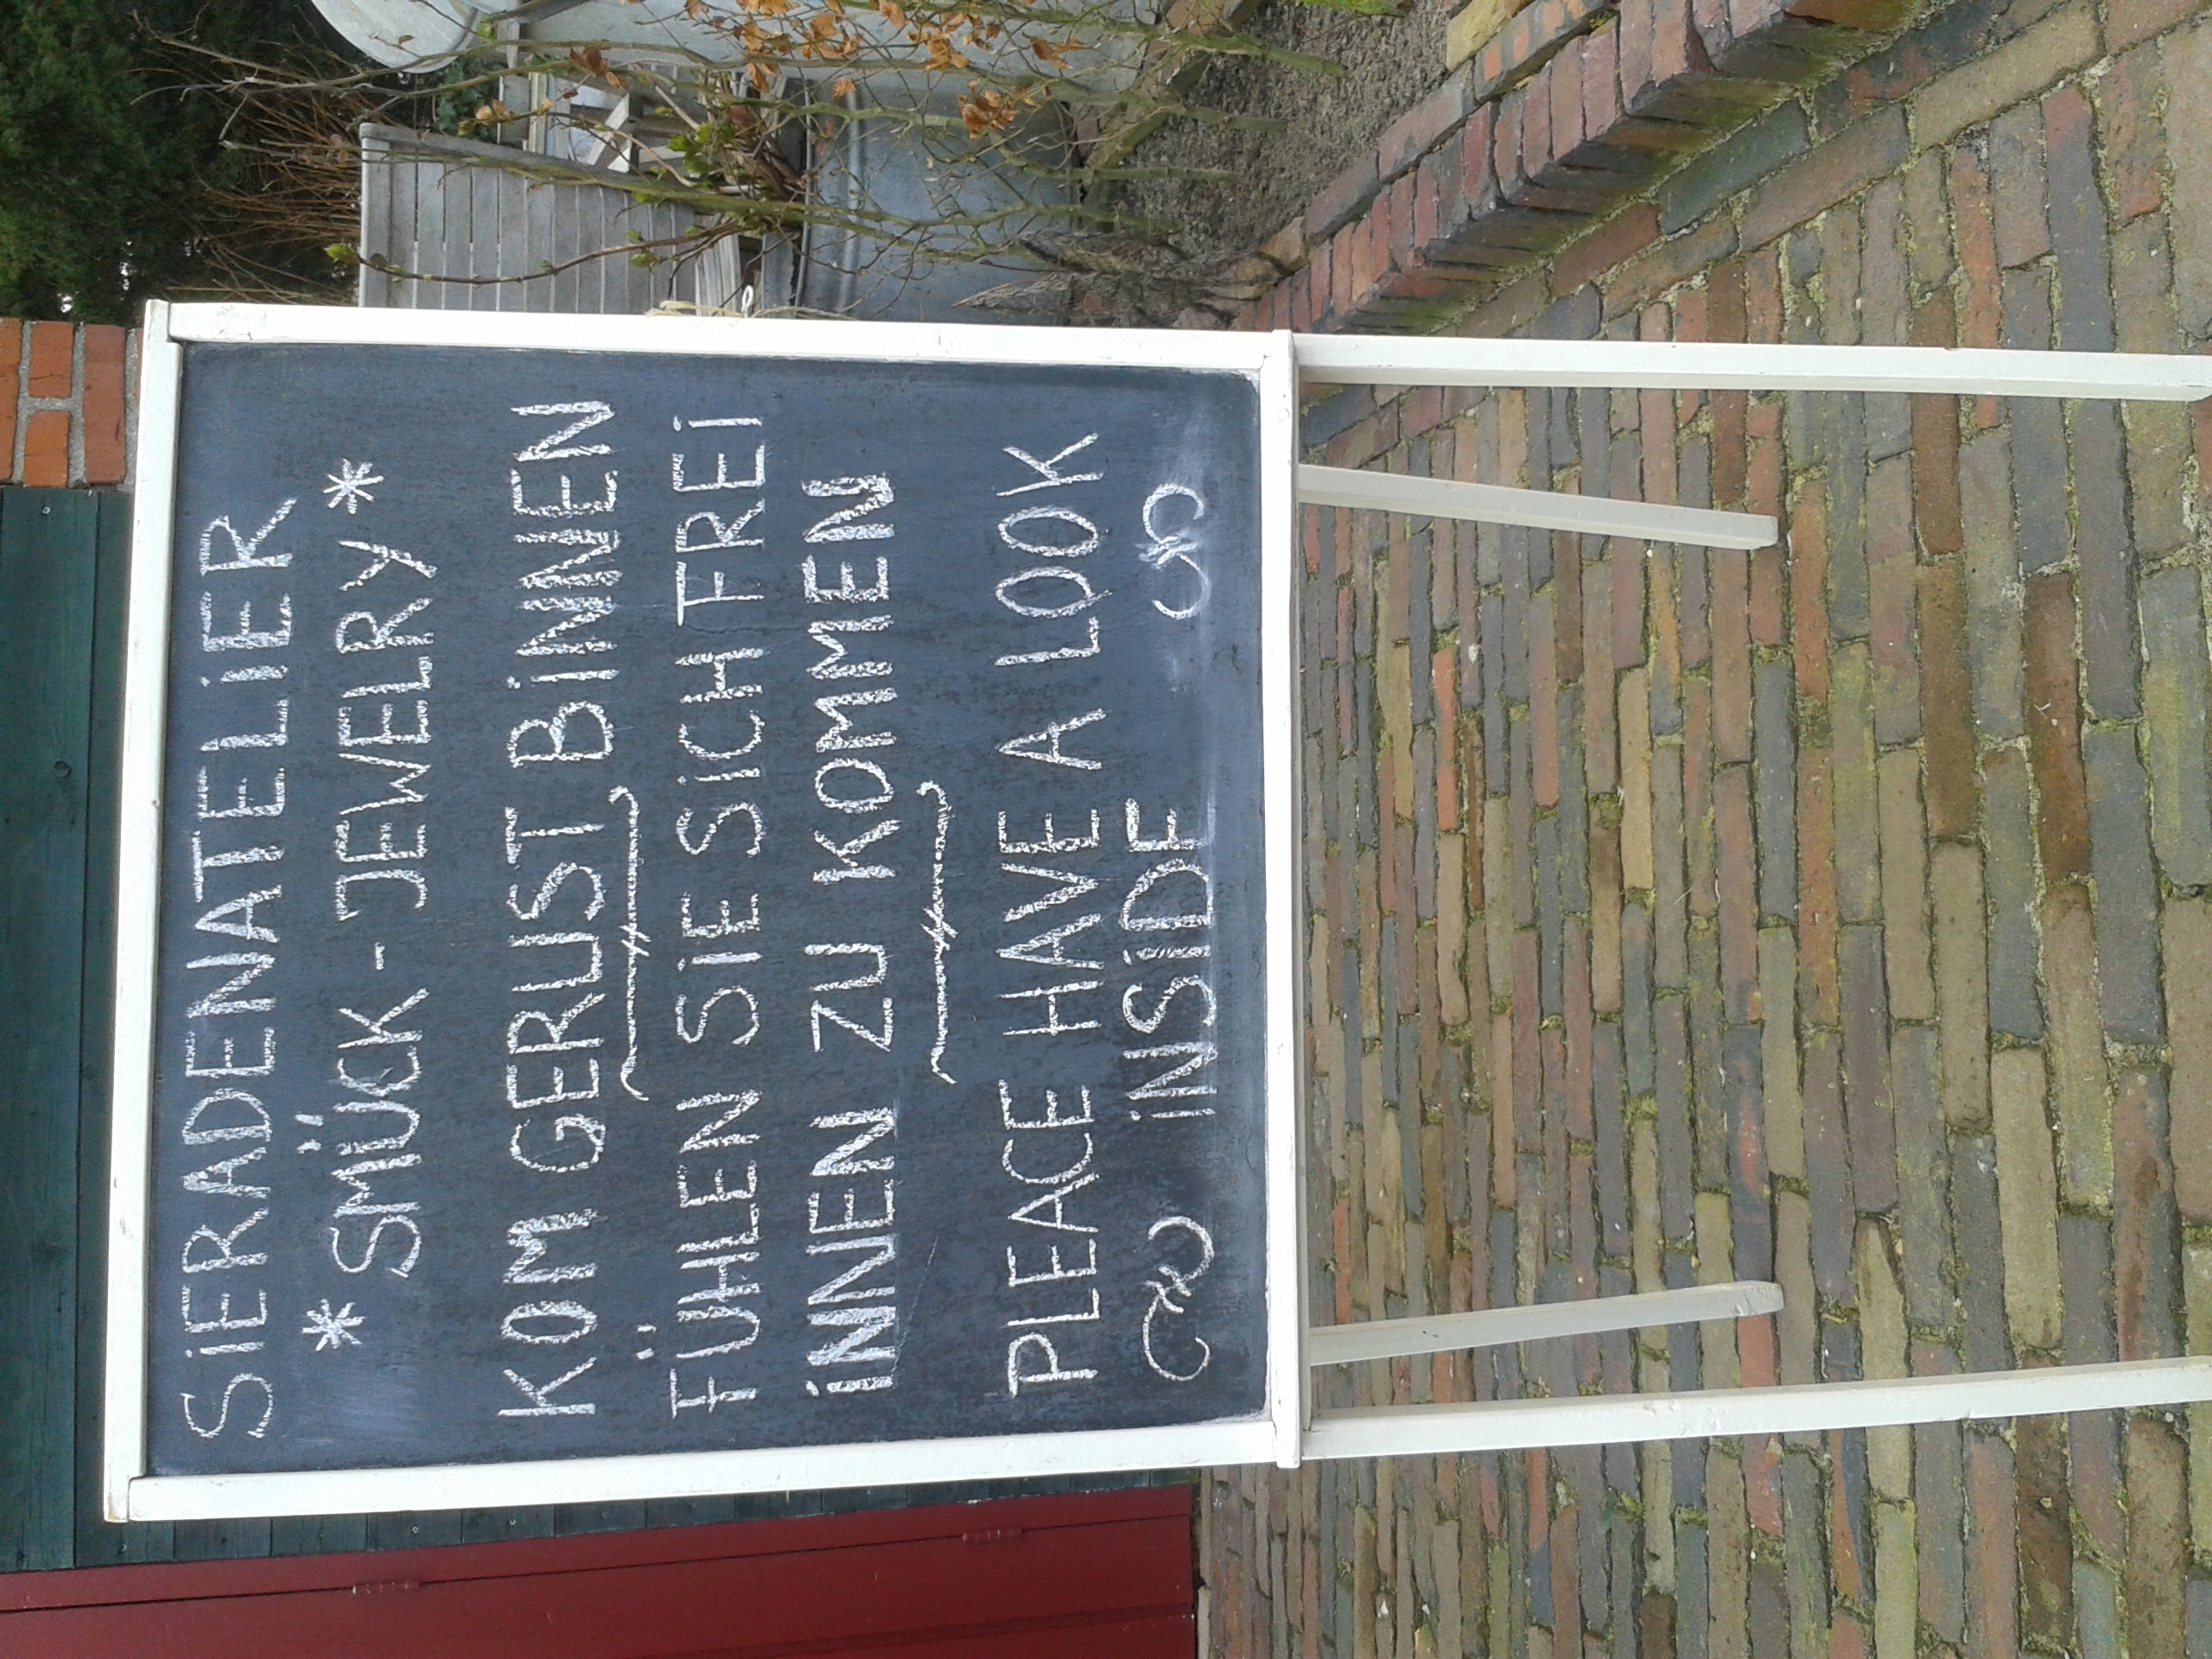 SiERADENATELiER
* SMÜCK - JEWELRY *
KOM GERUST BiNNEN
FÜHLEN SiE SiCH FREi
iNNEN ZU KOMMEN
PLEACE HAVE A LOOK
iNSiDE